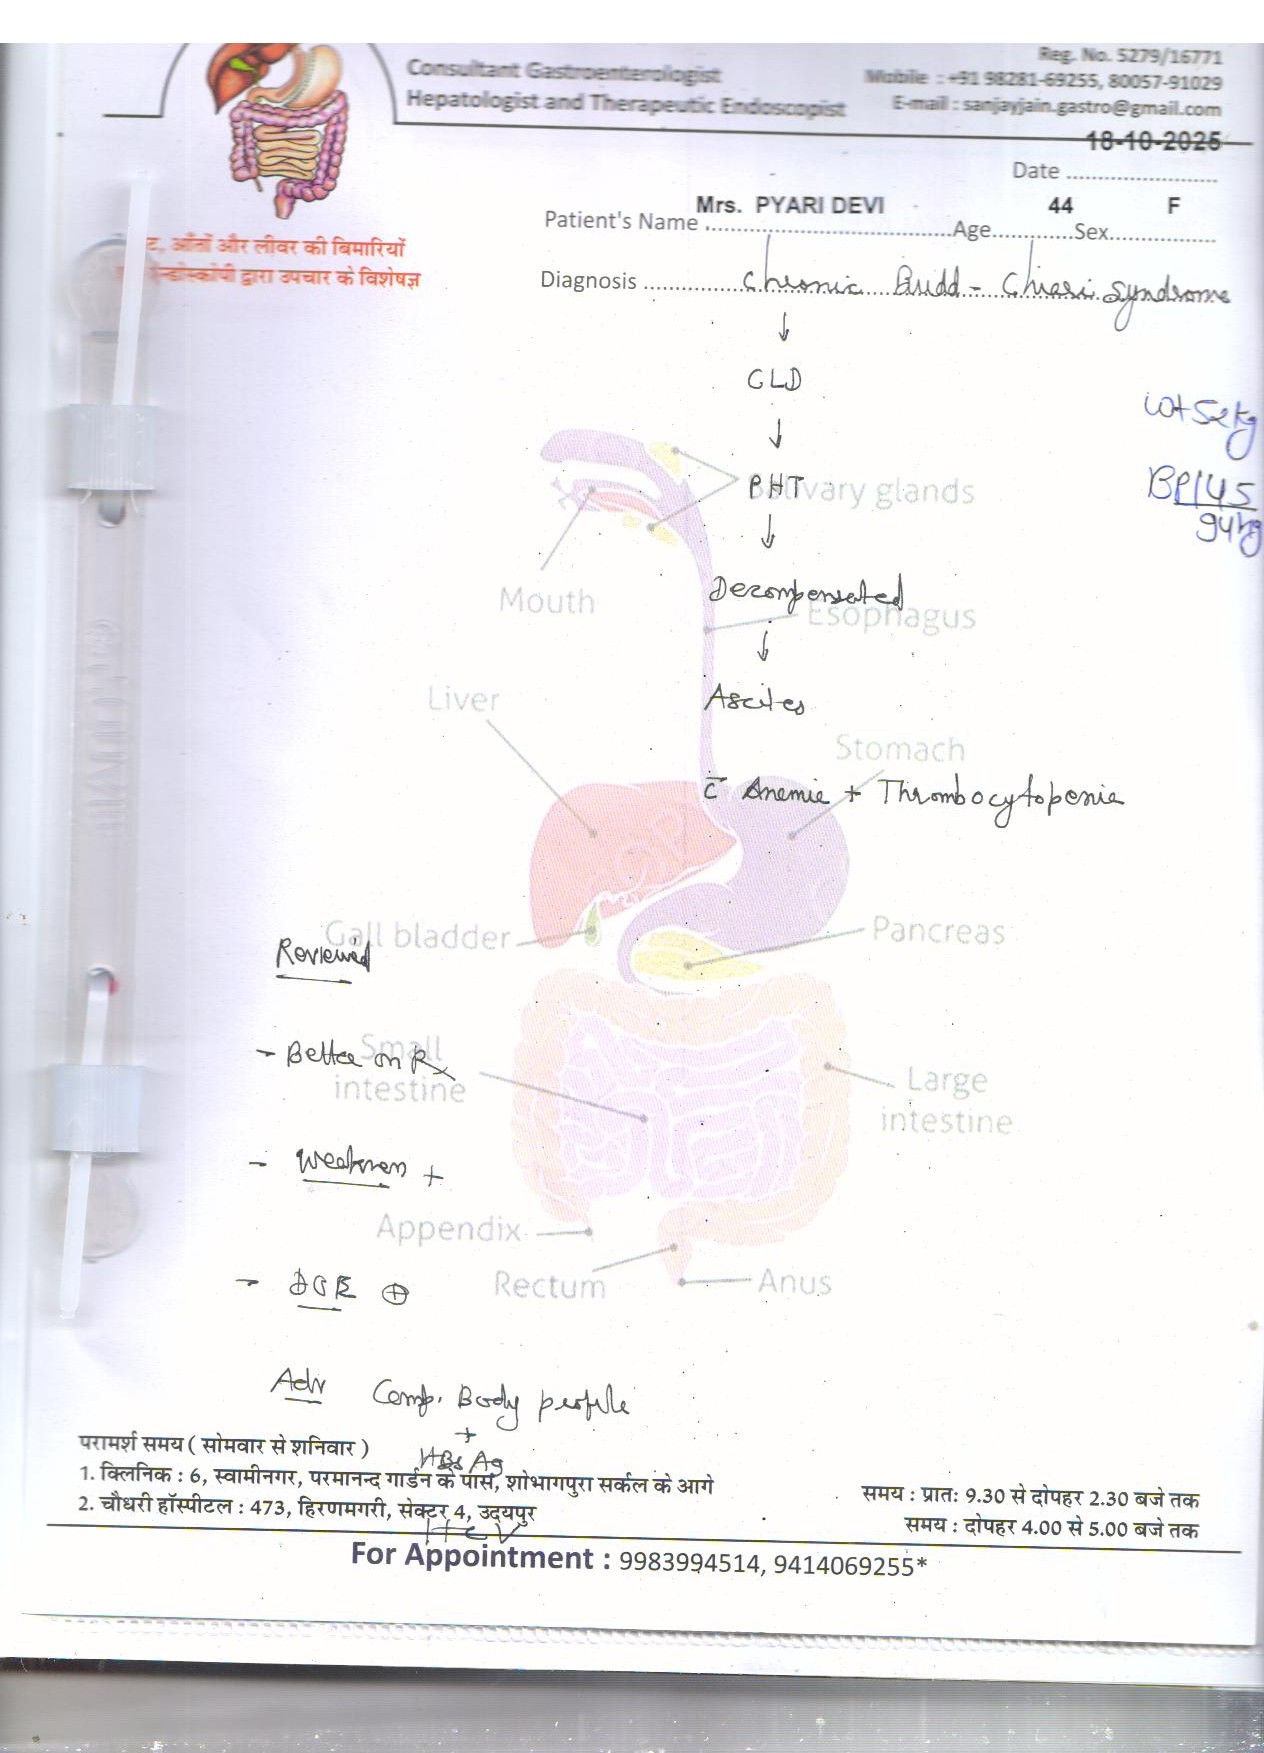 Consultant Gastroenterologist
Hepatologist and Therapeutic Endoscopist
Reg. No. 5279/16771
Mobile : +91 98281-69255, 80057-91029
E-mail : sanjayjain.gastro@gmail.com
18-10-2025
Date ........................
आँतों और लीवर की बिमारियों
द्वारा उपचार के विशेषज्ञ
Patient's Name Mrs. PYARI DEVI Age 44 Sex F
Diagnosis Chronic Budd - Chiari Syndrome
↓
CLD
wt 52kg
↓
PHT
BP 145
94
Salivary glands
↓
Mouth
Decompensated
Esophagus
↓
Liver
Ascites
Stomach
c̄ Anemia + Thrombocytopenia
Gall bladder
Pancreas
Reviewed
- Better on Rx
Small
intestine
Large
intestine
- Weakness +
Appendix
Rectum
Anus
Adv Comp. Body profile
+
HBsAg
HCV
परामर्श समय ( सोमवार से शनिवार )
1. क्लिनिक : 6, स्वामीनगर, परमानन्द गार्डन के पास, शोभागपुरा सर्कल के आगे
समय : प्रातः 9.30 से दोपहर 2.30 बजे तक
2. चौधरी हॉस्पीटल : 473, हिरणमगरी, सेक्टर 4, उदयपुर
समय : दोपहर 4.00 से 5.00 बजे तक
For Appointment : 9983994514, 9414069255*